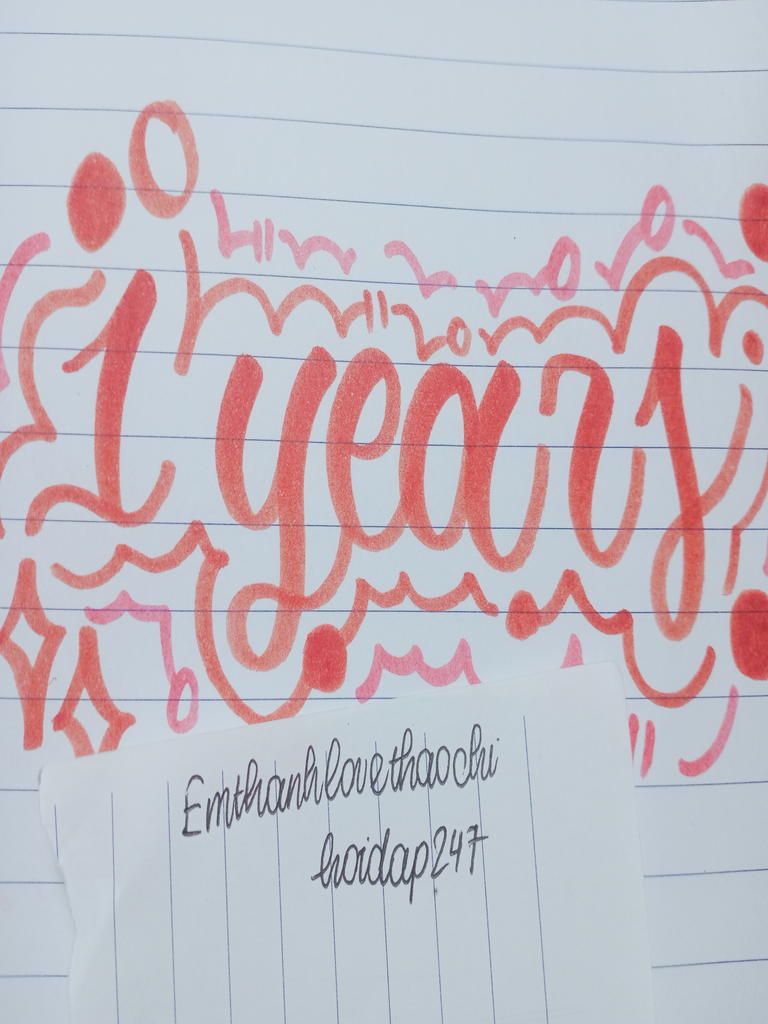 1 years
Emthanhlovethaochi
hoidap247